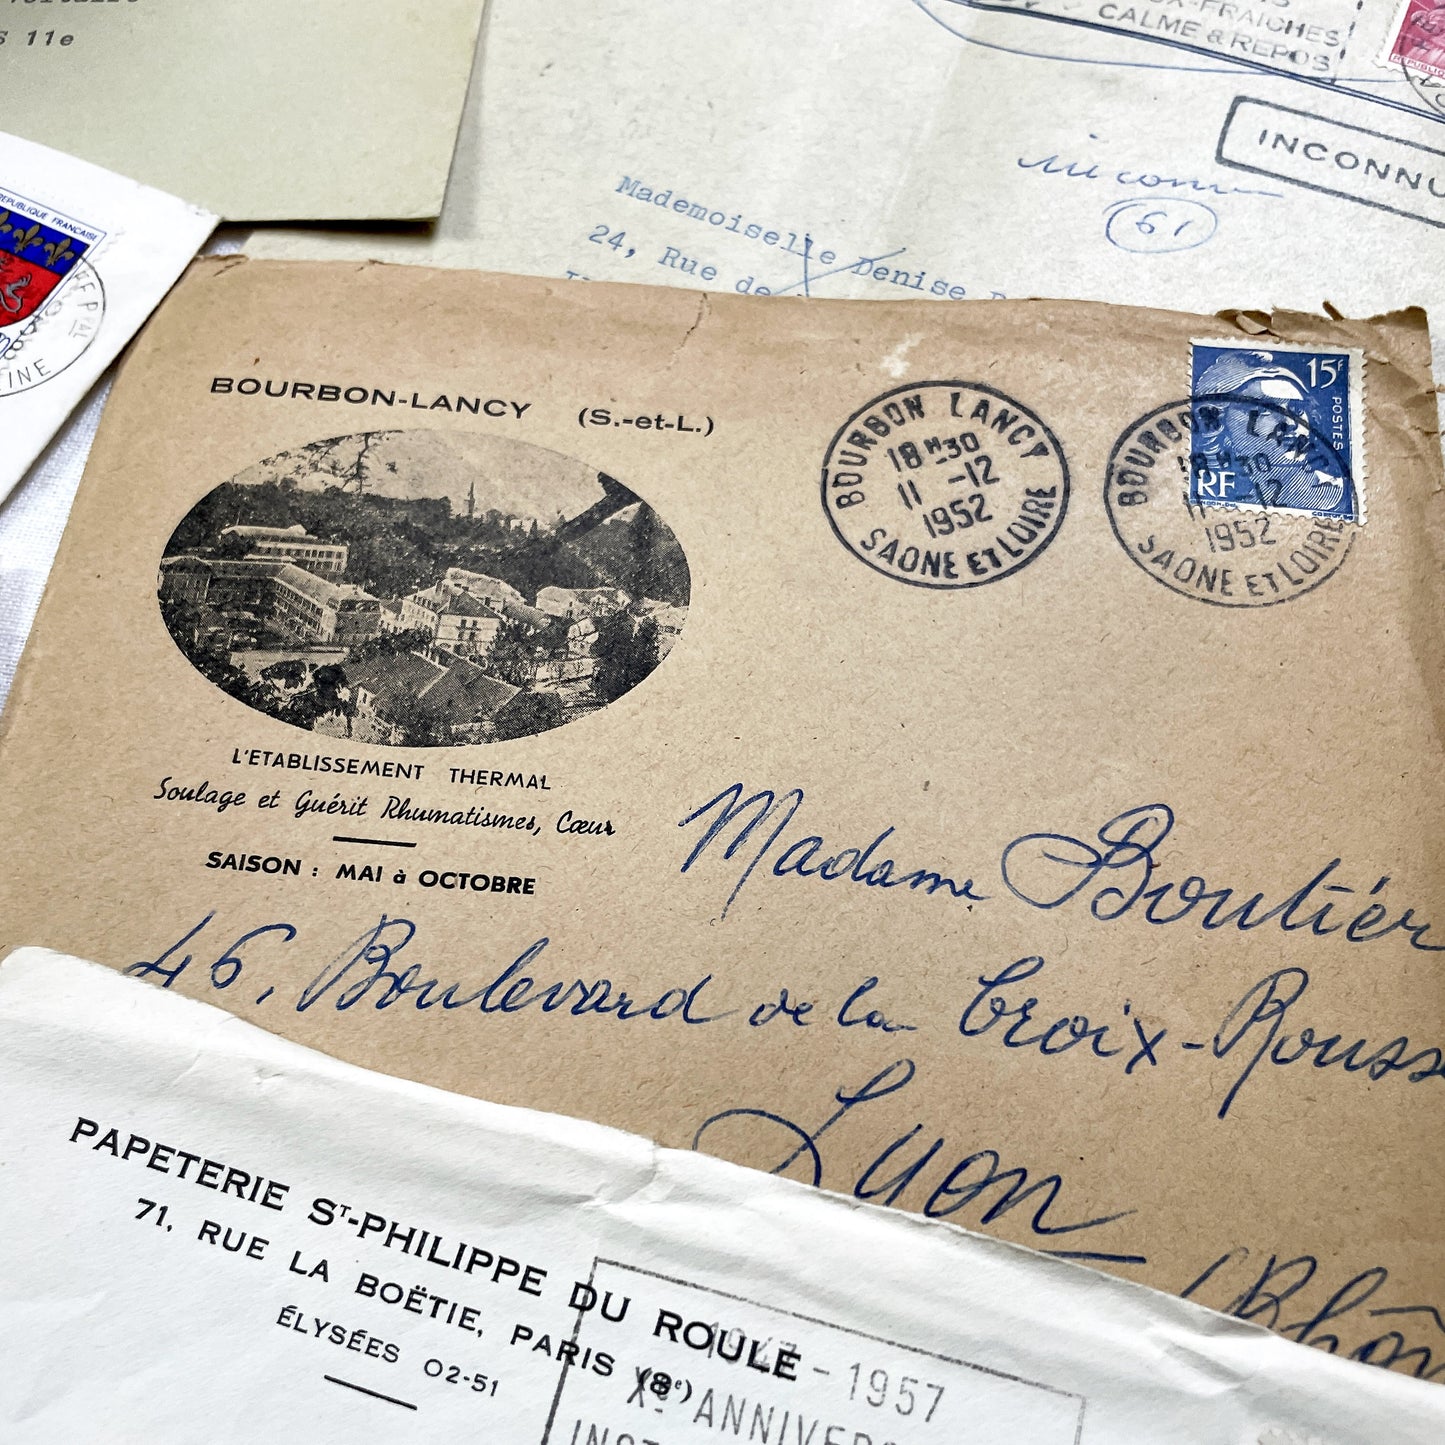 S 11e
RÉPUBLIQUE FRANÇAISE
CALME & REPOS
INCONNU
inconnu
61
Mademoiselle Denise
24, Rue de
BOURBON-LANCY (S.-et-L.)
L'ETABLISSEMENT THERMAL
Soulage et Guérit Rhumatismes, Cœur
SAISON : MAI à OCTOBRE
BOURBON LANCY
18H30
11 -12
1952
SAONE ET LOIRE
BOURBON LANC
18H30
11 -12
1952
SAONE ET LOIRE
15F
POSTES
RF
Madame Boutier
46, Boulevard de la Croix-Rousse
Lyon
(Rhôn
PAPETERIE ST-PHILIPPE DU ROULE
71, RUE LA BOËTIE, PARIS (8e)
ÉLYSÉES 02-51
1947-1957
Xe ANNIVER